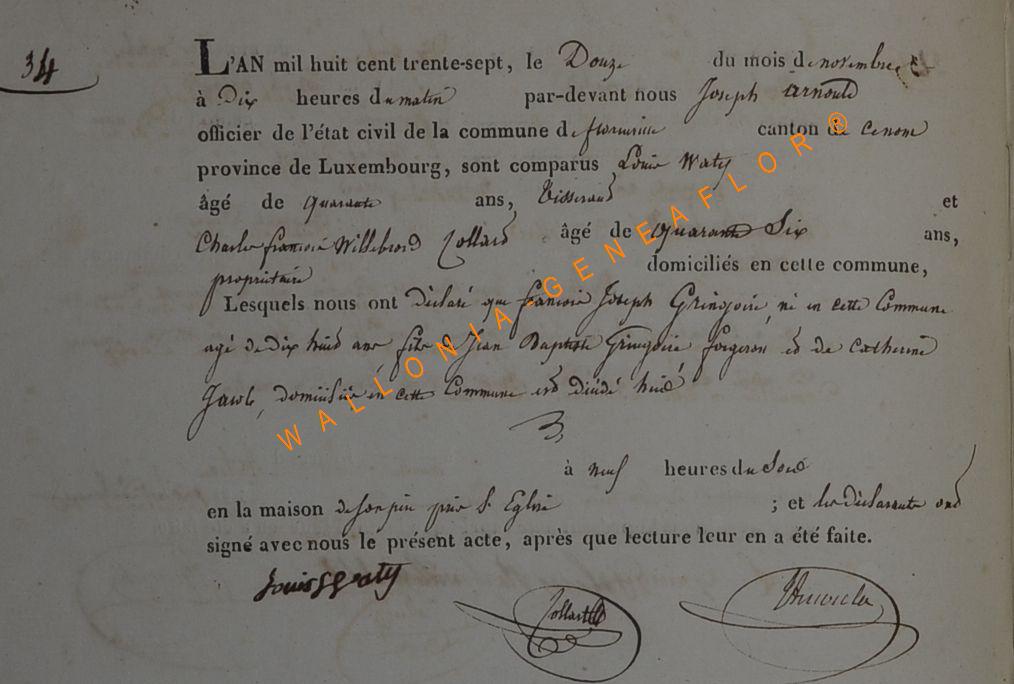 34
L'AN mil huit cent trente-sept, le Douze du mois de novembre,
à Dix heures du matin par-devant nous Joseph Arnould
officier de l'état civil de la commune de florenville canton de
province de Luxembourg, sont comparus Louis Waty
âgé de quarante ans, Tisserand et
Charles françois Willebrord Collard âgé de quarante Six ans,
propriétaire domiciliés en cette commune,
Lesquels nous ont déclaré que françois Joseph Gringoire, né en cette Commune
agé de dix huit ans fils de Jean Baptiste Gringoire forgeron et de Catherine
domiciliée en cette Commune est
à neuf heures du Soir
en la maison de son père près L' Eglise ; et les déclarants ont
signé avec nous le présent acte, après que lecture leur en a été faite.
Louis Waty
Collard
WALLONIA-GENEAFLOR®